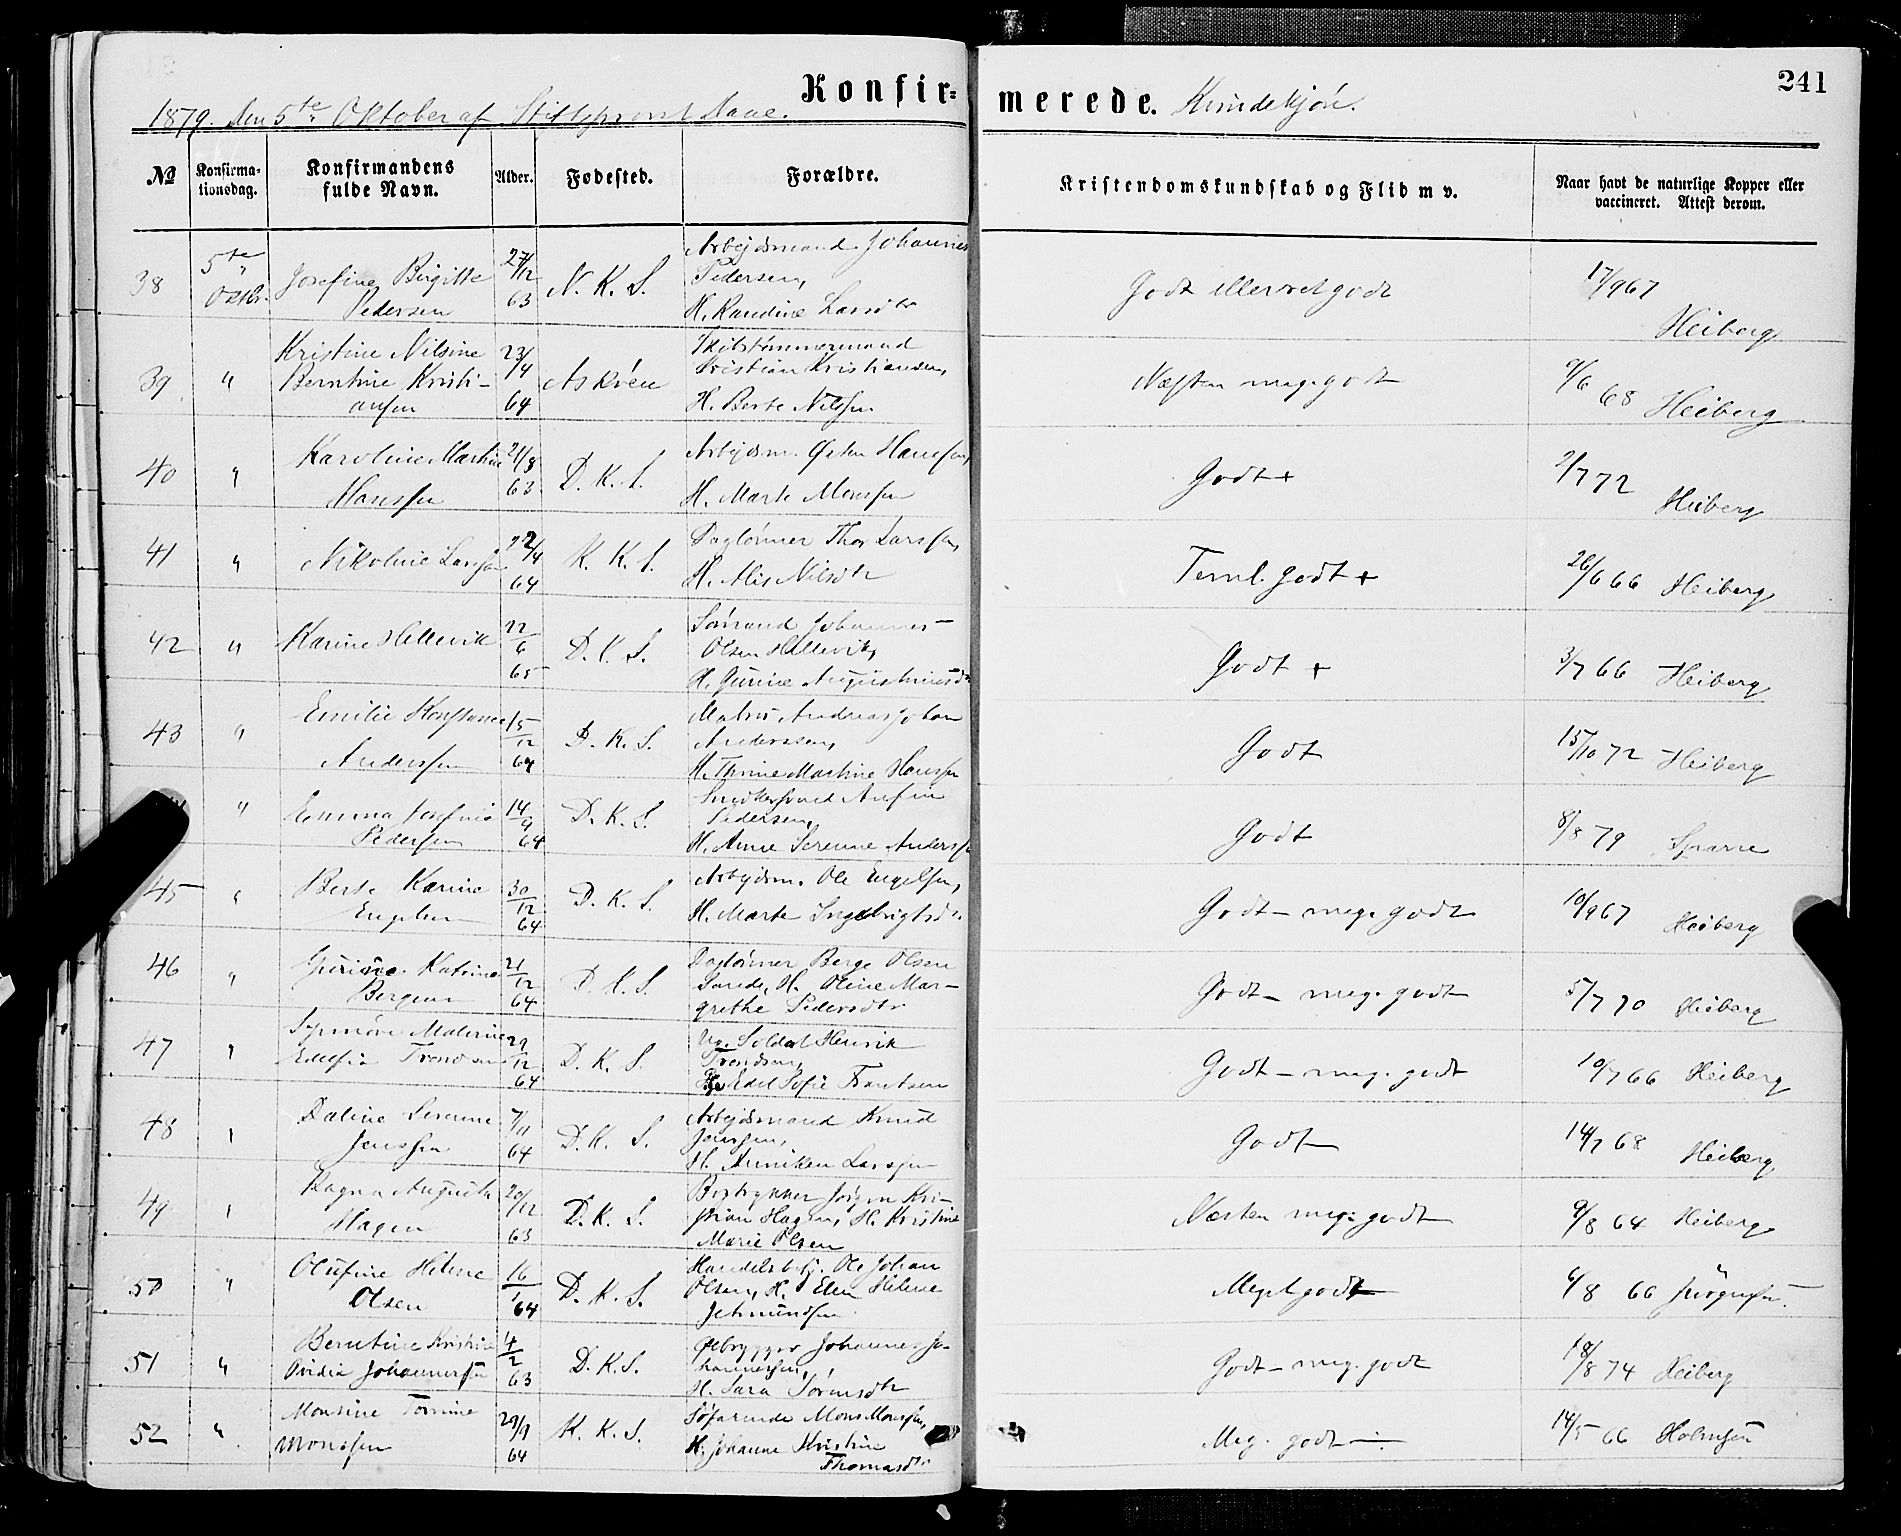 Konfir=
merede. Kvindekjøn.
241
1879. den 5te Oktober af Stiftsprovst
№
Konfirma-
tionsdag.
Konfirmandens
fulde Navn.
Alder.
Fødested.
Forældre.
Kristendomskundskab og Flid m v.
Naar havt de naturlige Kopper eller
vaccineret. Attest derom.
38 5te Oktbr. Josefine Birgitte Pedersen 27/12 63 N. K. S. Arbejdsmand Johannes Pedersen, H. Randine Larsdtr Godt eller ret godt 17/9 67 Heiberg
39 " Kristine Nilsine Berntine Kristiansen 23/4 64 Askvøen Skibstømmermand Kristian Kristiansen, H. Berte Nilssen Næsten meg. godt 9/6 68 Heiberg
40 " Karoline Martine Hanssen 21/8 63 D. K. S. Arbejdsm. Østen Hanssen, H. Marte Monssen Godt + 2/7 72 Heiberg
41 " Nikoline Larssen 22/4 64 K. K. S. Daglønner Thor Larssen, H. Alis Nilsdtr Teml. godt + 26/6 66 Heiberg
42 " Karine Hellevik 22/6 65 D. K. S. Sømand Johannes Olsen Hellevik, H. Gurine Augustinusdr Godt + 3/7 66 Heiberg
43 " Emilie Konstance Anderssen 15/12 64 D. K. S. Matros Andreas Johan Anderssen, H. Thrine Martine Hanssen Godt 15/10 72 Heiberg
" Emma Josefine Pedersen 14/9 64 D. K. S. Pedersen, H. Anne Serenne Anderss Godt 8/8 79 Sparre
45 " Berte Karine Engelsen 30/12 64 D. K. S. Arbejdsm. Ole Engelsen, H. Marte Ingebrigtsdr Godt - meg. godt 10/9 67 Heiberg
46 " Katrine Bergesen 21/12 64 D. K. S. Daglønner Berge Olsen H. Oline Margrethe Pedersdtr Godt - meg. godt 5/7 70 Heiberg
47 " Synnøve Edelsofie Trondsen 29/12 64 D. K. S. Soldat Henrik Trondsen, H. Edel Sofie Frantsen Godt - meg. godt 10/7 66 Heiberg
48 " Daline Serenne Jenssen 7/11 64 D. K. S. Arbejdsmand Knud Jenssen, H. Anniken Larssen Godt 14/7 68 Heiberg
49 " Ragna Augusta Hagen 20/12 63 D. K. S. Bogtrykker Jørgen Kristian Hagen, H. Kristine Marie Olsen Næsten meg. godt 9/8 64 Heiberg
50 " Olufine Helene Olsen 16/1 64 D. K. S. Handelsbetj. Ole Johan Olsen, H. Elen Helene Jetmundsen Meget godt 6/8 66 Jürgensen.
51 " Berntine Kristine Ovidia Johannessen 4/2 63 D. K. S. Ølbrygger Johannes Johannessen, H. Sara Sørensdtr Godt - meg. godt 18/8 74 Heiberg
52 " Monsine Tomine Monssen 29/9 64 K. K. S. Søfarende Mons Monssen, H. Johanne Kristine Thomasdtr Meg. godt 14/5 66 Holmsen